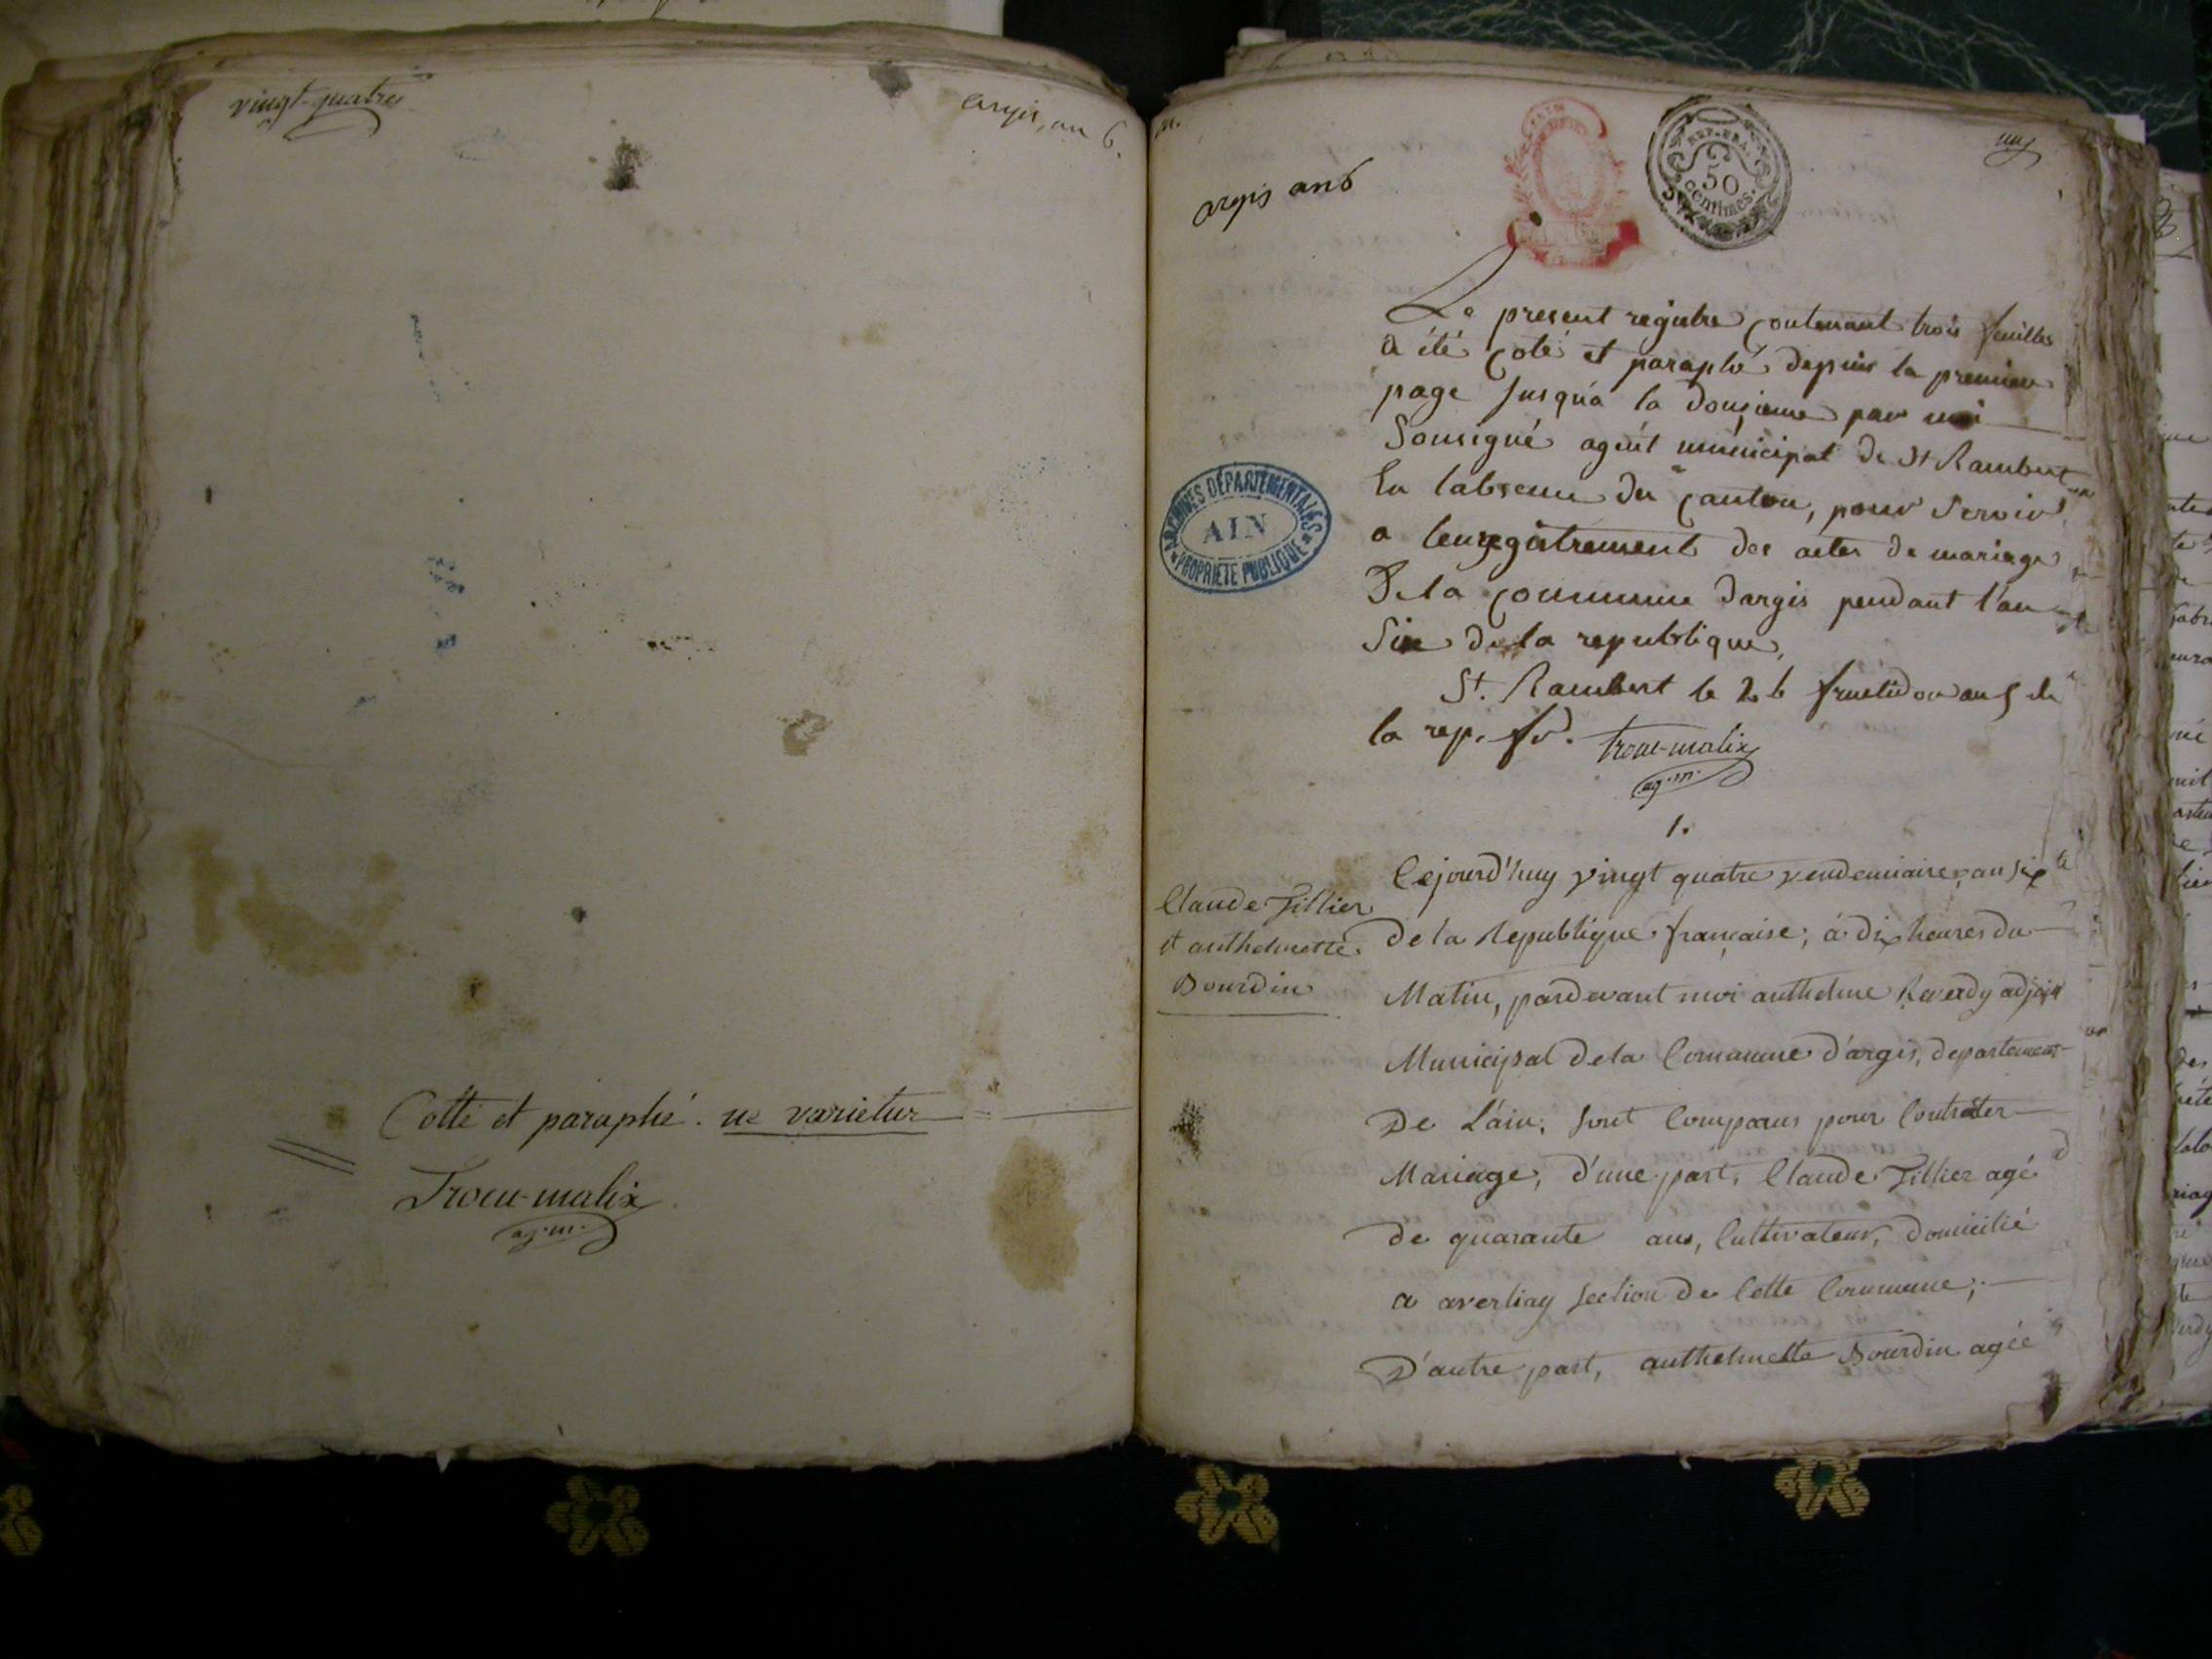 vingt-quatre
argis, an 6.
Cotté et paraphé. ne varietur
Trocu-malix
ag. m.
argis an 6
REP. FRA.
50
centimes.
un
ARCHIVES DÉPARTEMENTALES
AIN
PROPRIÉTÉ PUBLIQUE
Le present registre contenant trois feuilles
a été coté et paraphé depuis la premiere
page jusqu'a la douzieme par moi
Sousigné agent municipal de St Rambert
En labsence du canton, pour servir
a lenregistrement des actes de mariage
De la commune dargis pendant l'an
Six de la republique,
St. Rambert le 26 fructidor an 5 de
la rep. fr. Trocu-malix
ag. m.
1.
Claude Tillier
et anthelmette
Bourdin
Cejourd'huy vingt quatre vendemiaire, an six
de la Republique française, à dix heures du
Matin, pardevant moi anthelme Reverdy adjoint
Municipal de la Commune d'argis, departement
De L'ain, sont Comparus pour Contracter
Mariage, d'une part, Claude Tillier agé
de quarante ans, Cultivateur, Domicilié
a averliay section de Cette Commune;
D'autre part, anthelmette Bourdin agée